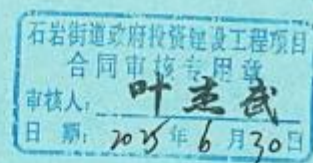 石岩街道政府投资建设工程项目
合同审核专用章
审核人：叶志武
日 期：2025年6月30日